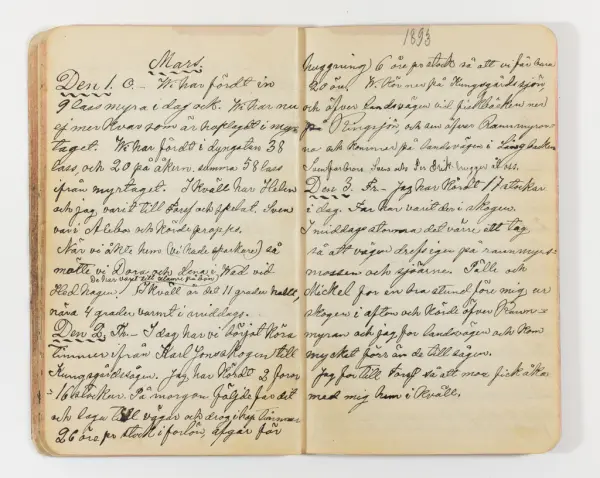 Mars.
Den 1. O. – Vi har fördt in
9 lass myra i dag ock. Vi har nu
ej mer kvar som är hoplagdt i myr
taget. Vi har fördt i dyngeten 38
lass, och 20 på åkern, summa 58 lass
ifrån myrtaget. I kväll har Helen
och jag varit till Fors och spelat. Sven
var i Alebo och körde props.
När vi åkte hem (vi hade sparkere) så
mötte vi Dora och Lina i Wad vid
(De har varit till på bön)
Hed hagen! I kväll är det 11 grader kallt,
nära 4 grader varmt i middags.
Den 2. Th. – I dag har vi börjat köra
timmer ifrån Karl Jons skogen till
Kungsgårdssågen. Jag har kördt 2 foror
= 16 stocker. På morgon följde far dit
och laga till vägar och drog ihop timmer
26 öre pr stock i forlön, afgår för
1893
huggning) 6 öre pr stock så att vi får bara
20 öre. Vi kör ner på Kungsgårdssjön
och öfver landsvägen vid fickbäcken ner
på Öringsjön, och sen öfver Raunmyron
na och kommer på landsvägen i
Sven och Per Erik hugger
Den 3. Fr. – jag har kördt 17 stockar
i dag. Far har varit der i skogen.
I middags stormade det värre, ett tag,
så att vägen dref igen på raunmyrs=
mossen och sjöarne. Pälle och
Mickel for en bra stund före mig ur
skogen i afton och körde öfver Raun=
myran och jag for landsvägen och kom
mycket förr än de till sågen.
Jag for till Fors så att mor fick åka
med mig hem i kväll.